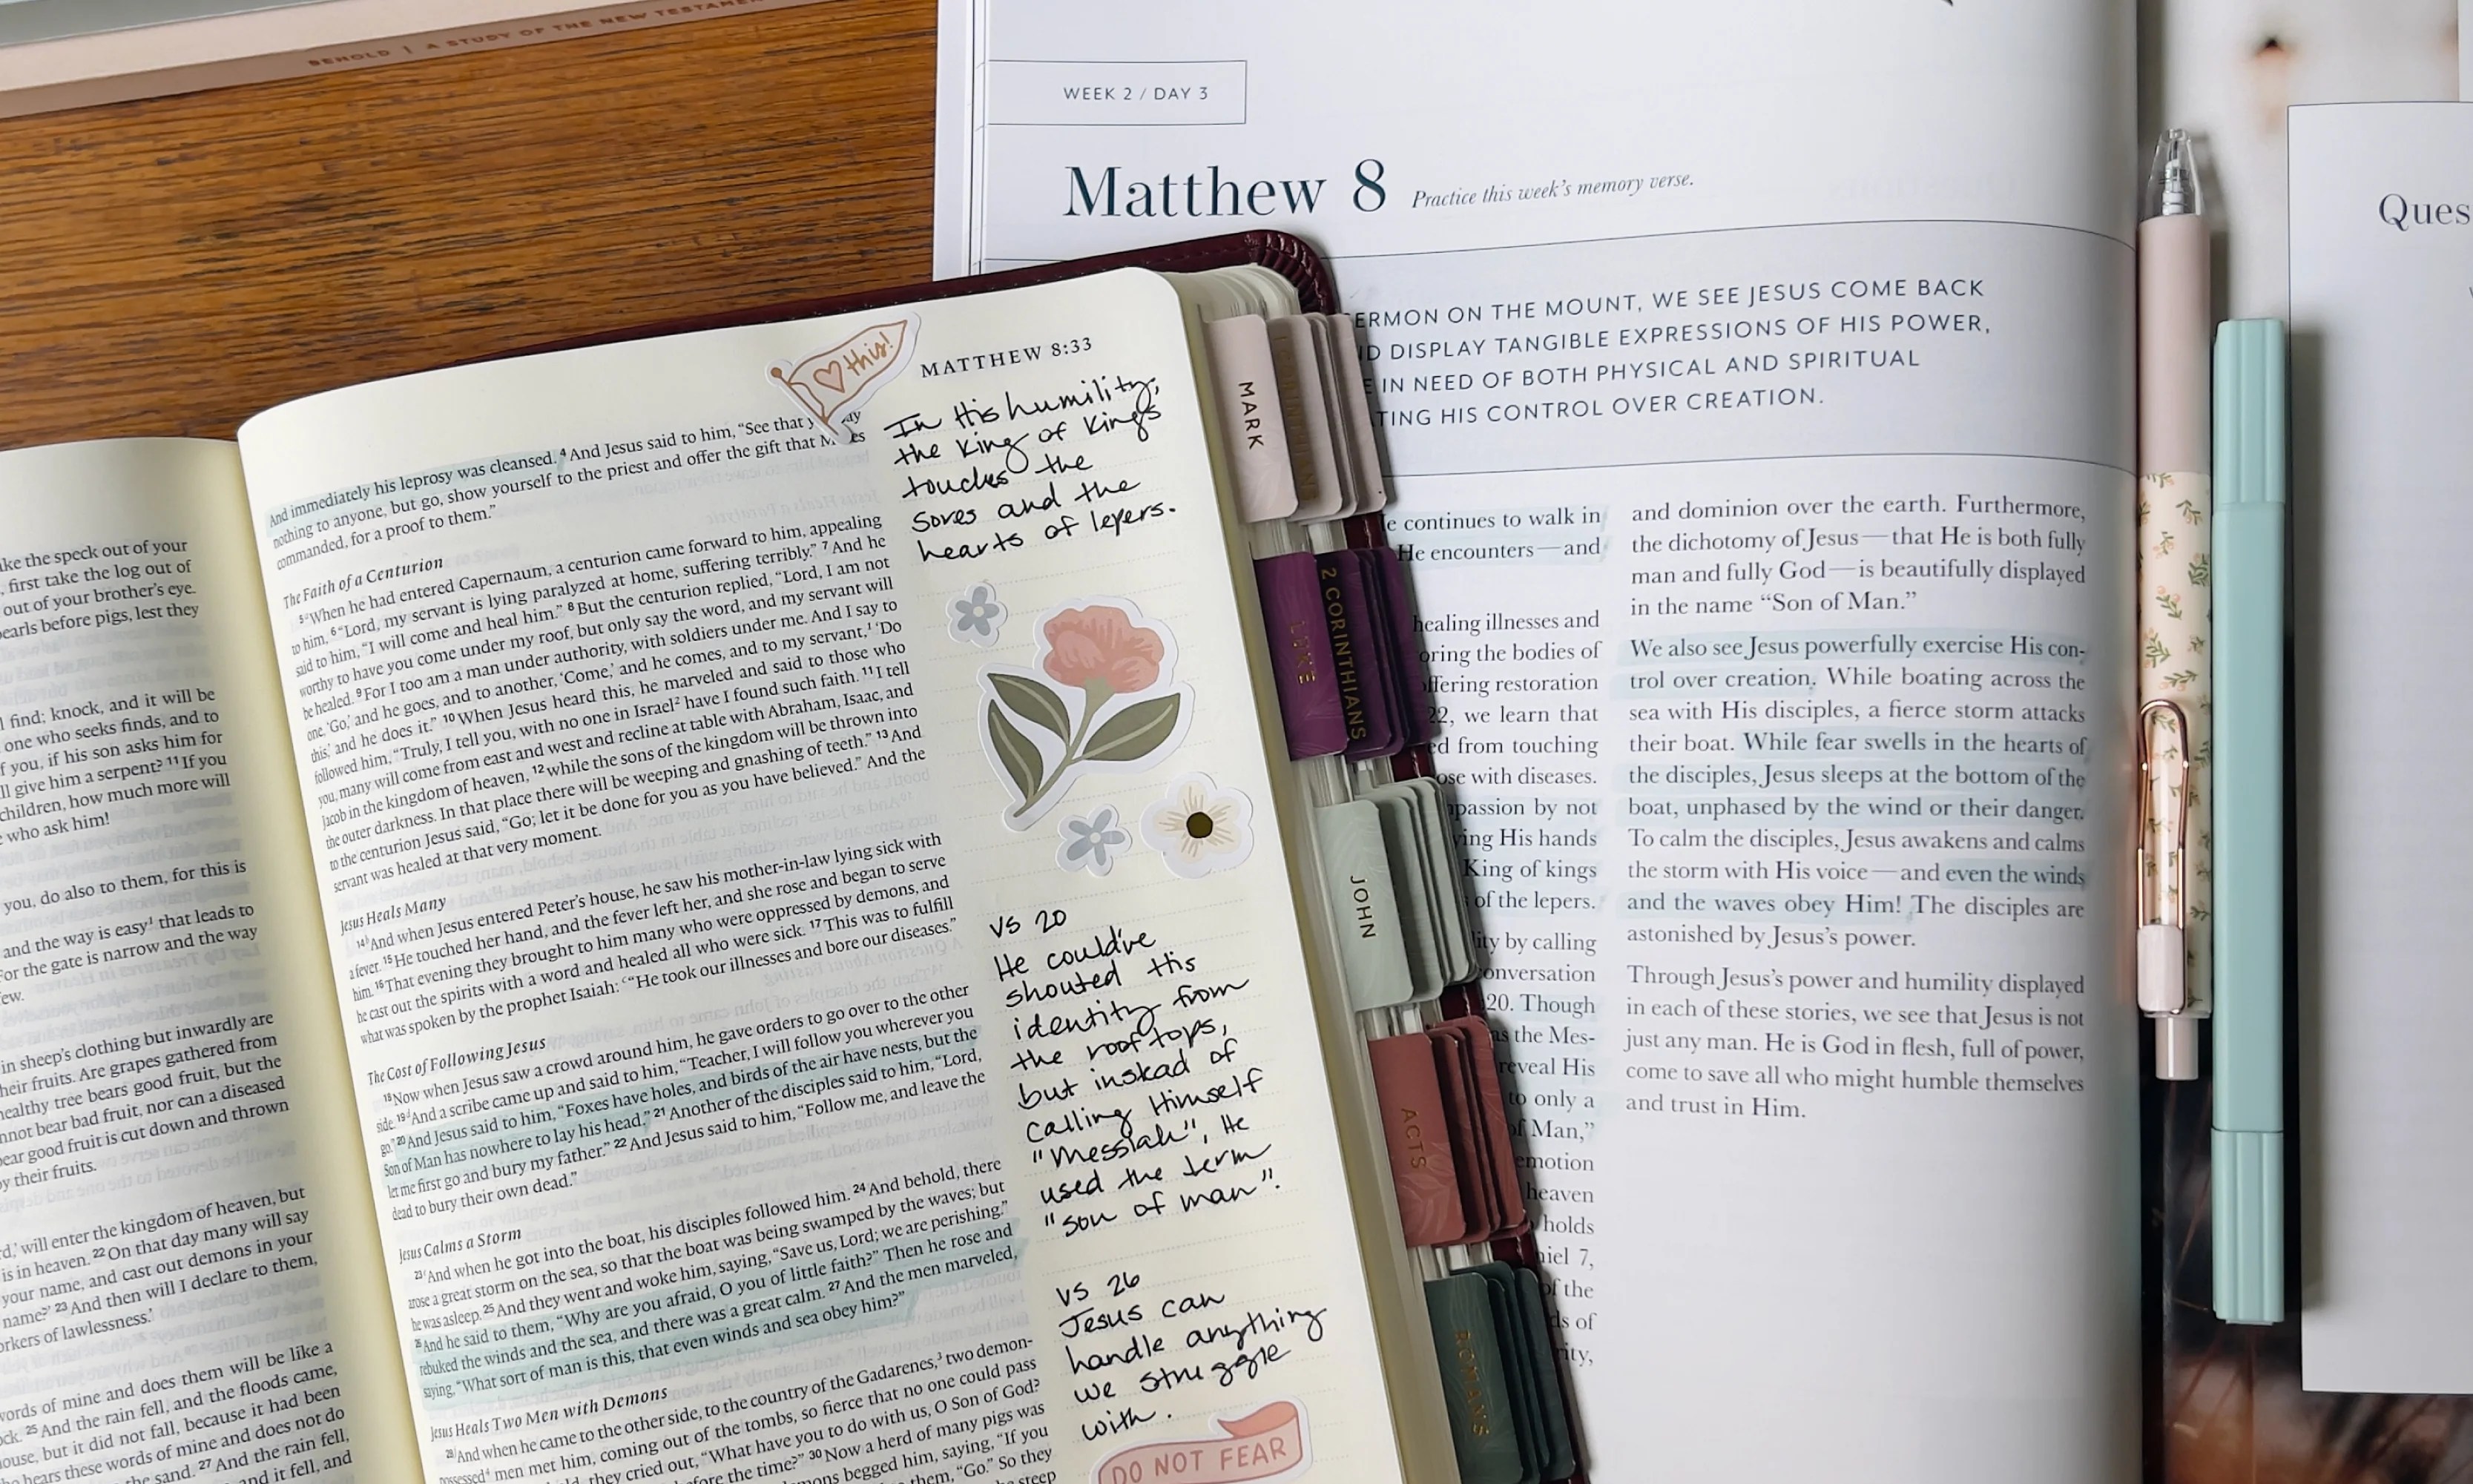 BEHOLD | A STUDY OF THE NEW TESTAMEN
WEEK 2 / DAY 3
Matthew 8 Practice this week's memory verse.
ERMON ON THE MOUNT, WE SEE JESUS COME BACK
ND DISPLAY TANGIBLE EXPRESSIONS OF HIS POWER,
E IN NEED OF BOTH PHYSICAL AND SPIRITUAL
TING HIS CONTROL OVER CREATION.
e continues to walk in
He encounters—and
healing illnesses and
oring the bodies of
ffering restoration
22, we learn that
ed from touching
ose with diseases.
passion by not
ying His hands
King of kings
of the lepers.
lity by calling
onversation
20. Though
as the Mes-
reveal His
to only a
of Man,”
emotion
heaven
holds
niel 7,
of the
ds of
rity,
and dominion over the earth. Furthermore,
the dichotomy of Jesus—that He is both fully
man and fully God—is beautifully displayed
in the name “Son of Man.”
We also see Jesus powerfully exercise His con-
trol over creation. While boating across the
sea with His disciples, a fierce storm attacks
their boat. While fear swells in the hearts of
the disciples, Jesus sleeps at the bottom of the
boat, unphased by the wind or their danger.
To calm the disciples, Jesus awakens and calms
the storm with His voice—and even the winds
and the waves obey Him! The disciples are
astonished by Jesus's power.
Through Jesus's power and humility displayed
in each of these stories, we see that Jesus is not
just any man. He is God in flesh, full of power,
come to save all who might humble themselves
and trust in Him.
Ques
ike the speck out of your
, first take the log out of
out of your brother's eye.
pearls before pigs, lest they
l find; knock, and it will be
one who seeks finds, and to
f you, if his son asks him for
ll give him a serpent? 11 If you
children, how much more will
who ask him!
you, do also to them, for this is
and the way is easy1 that leads to
For the gate is narrow and the way
few.
in sheep's clothing but inwardly are
heir fruits. Are grapes gathered from
healthy tree bears good fruit, but the
nnot bear bad fruit, nor can a diseased
bear good fruit is cut down and thrown
y their fruits.
rd,' will enter the kingdom of heaven, but
is in heaven. 22 On that day many will say
your name, and cast out demons in your
name?' 23 And then will I declare to them,
orkers of lawlessness.'
words of mine and does them will be like a
ock. 25 And the rain fell, and the floods came,
house, but it did not fall, because it had been
hears these words of mine and does not do
the sand. 27 And the rain fell,
and it fell, and
♡ this!
MATTHEW 8:33
And immediately his leprosy was cleansed. 4 And Jesus said to him, “See that
nothing to anyone, but go, show yourself to the priest and offer the gift that
commanded, for a proof to them.”
The Faith of a Centurion
5 When he had entered Capernaum, a centurion came forward to him, appealing
to him. 6 “Lord, my servant is lying paralyzed at home, suffering terribly.” 7 And he
said to him, “I will come and heal him.” 8 But the centurion replied, “Lord, I am not
worthy to have you come under my roof, but only say the word, and my servant will
be healed. 9 For I too am a man under authority, with soldiers under me. And I say to
one, ‘Go,’ and he goes, and to another, ‘Come,’ and he comes, and to my servant,1 ‘Do
this,’ and he does it.” 10 When Jesus heard this, he marveled and said to those who
followed him, “Truly, I tell you, with no one in Israel2 have I found such faith. 11 I tell
you, many will come from east and west and recline at table with Abraham, Isaac, and
Jacob in the kingdom of heaven, 12 while the sons of the kingdom will be thrown into
the outer darkness. In that place there will be weeping and gnashing of teeth.” 13 And
to the centurion Jesus said, “Go; let it be done for you as you have believed.” And the
servant was healed at that very moment.
Jesus Heals Many
14 And when Jesus entered Peter's house, he saw his mother-in-law lying sick with
a fever. 15 He touched her hand, and the fever left her, and she rose and began to serve
him. 16 That evening they brought to him many who were oppressed by demons, and
he cast out the spirits with a word and healed all who were sick. 17 This was to fulfill
what was spoken by the prophet Isaiah: “He took our illnesses and bore our diseases.”
The Cost of Following Jesus
18 Now when Jesus saw a crowd around him, he gave orders to go over to the other
side. 19 And a scribe came up and said to him, “Teacher, I will follow you wherever you
go.” 20 And Jesus said to him, “Foxes have holes, and birds of the air have nests, but the
Son of Man has nowhere to lay his head.” 21 Another of the disciples said to him, “Lord,
let me first go and bury my father.” 22 And Jesus said to him, “Follow me, and leave the
dead to bury their own dead.”
Jesus Calms a Storm
23 And when he got into the boat, his disciples followed him. 24 And behold, there
arose a great storm on the sea, so that the boat was being swamped by the waves; but
he was asleep. 25 And they went and woke him, saying, “Save us, Lord; we are perishing.”
26 And he said to them, “Why are you afraid, O you of little faith?” Then he rose and
rebuked the winds and the sea, and there was a great calm. 27 And the men marveled,
saying, “What sort of man is this, that even winds and sea obey him?”
Jesus Heals Two Men with Demons
28 And when he came to the other side, to the country of the Gadarenes,3 two demon-
possessed4 men met him, coming out of the tombs, so fierce that no one could pass
they cried out, “What have you to do with us, O Son of God?
before the time?” 30 Now a herd of many pigs was
mons begged him, saying, “If you
them, “Go.” So they
steep
In His humility,
the King of Kings
touches the
sores and the
hearts of lepers.
vs 20
He could've
shouted His
identity from
the rooftops,
but instead of
calling Himself
"Messiah", He
used the term
"son of man".
vs 26
Jesus can
handle anything
we struggle
with.
DO NOT FEAR
MARK
LUKE
2 CORINTHIANS
JOHN
ACTS
ROMANS